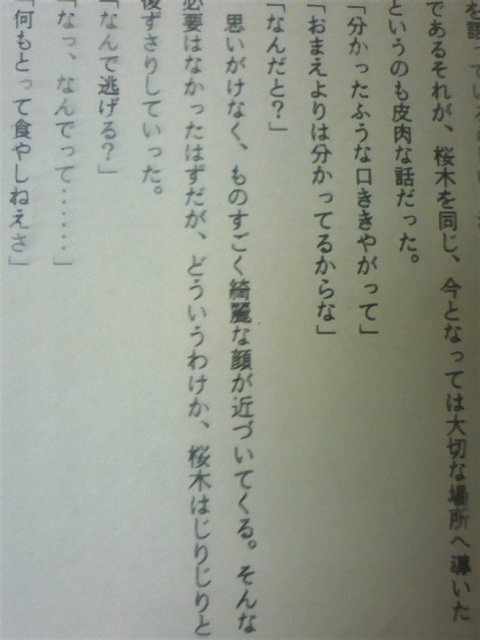 であるそれが、桜木を同じ、今となっては大切な場所へ導いた
というのも皮肉な話だった。
「分かったふうな口ききやがって」
「おまえよりは分かってるからな」
「なんだと？」
思いがけなく、ものすごく綺麗な顔が近づいてくる。そんな
必要はなかったはずだが、どういうわけか、桜木はじりじりと
後ずさりしていった。
「なんで逃げる？」
「なっ、なんでって……」
「何もとって食やしねえさ」